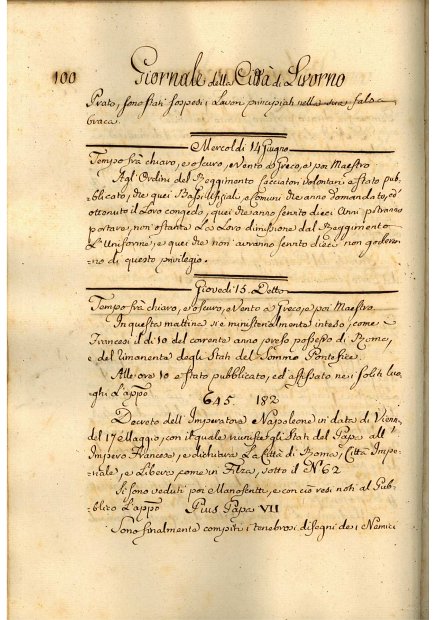 100 Giornale della Città di Livorno
Prato, sono stati sospesi i Lavori principiati nella sua fabs
braca.
Mercoldi 14 Giugno
Tempo frà chiaro, e oscuro, e Vento à Greco, e poi Maestro
Agl' Ordini del Reggimento Cacciatori volontarj è stato pub-
blicato, che quei Bass' Uffiziali, e Comuni che anno domandato, ed
ottenuto il Loro congedo, quei che anno servito dieci Anni potranno
portare, non ostante La Loro dimissione dal Reggimento
L'Uniforme, e quei che non avranno servito dieci non godran-
no di questo privilegio.
Giovedi 15. Detto
Tempo frà chiaro, e oscuro, e Vento à Greco, e poi Maestro.
In questa mattina si è ministerialmente inteso, come i
Francesi il dì 10 del corrente anno preso possesso di Roma,
e del rimanente degli Stati del Sommo Pontefice.
Alle ore 10 è stato pubblicato, ed affissato nei soliti luo-
ghi L'appo
645. 182
Decreto dell' Imperatore Napoleone in data di Vienna
del 17 Maggio, con il quale riunisce gli Stati del Papa all'
Impero Francese, e dichiara La Città di Roma, Città Impe-
riale, e Libera come in Filza, sotto il N.º 62
Si sono veduti poi Manoscritti, e con ciò resi noti al Pub-
blico L'appo Pius Papa VII
Sono finalmente compiti i tenebrosi disegni dei Nemici